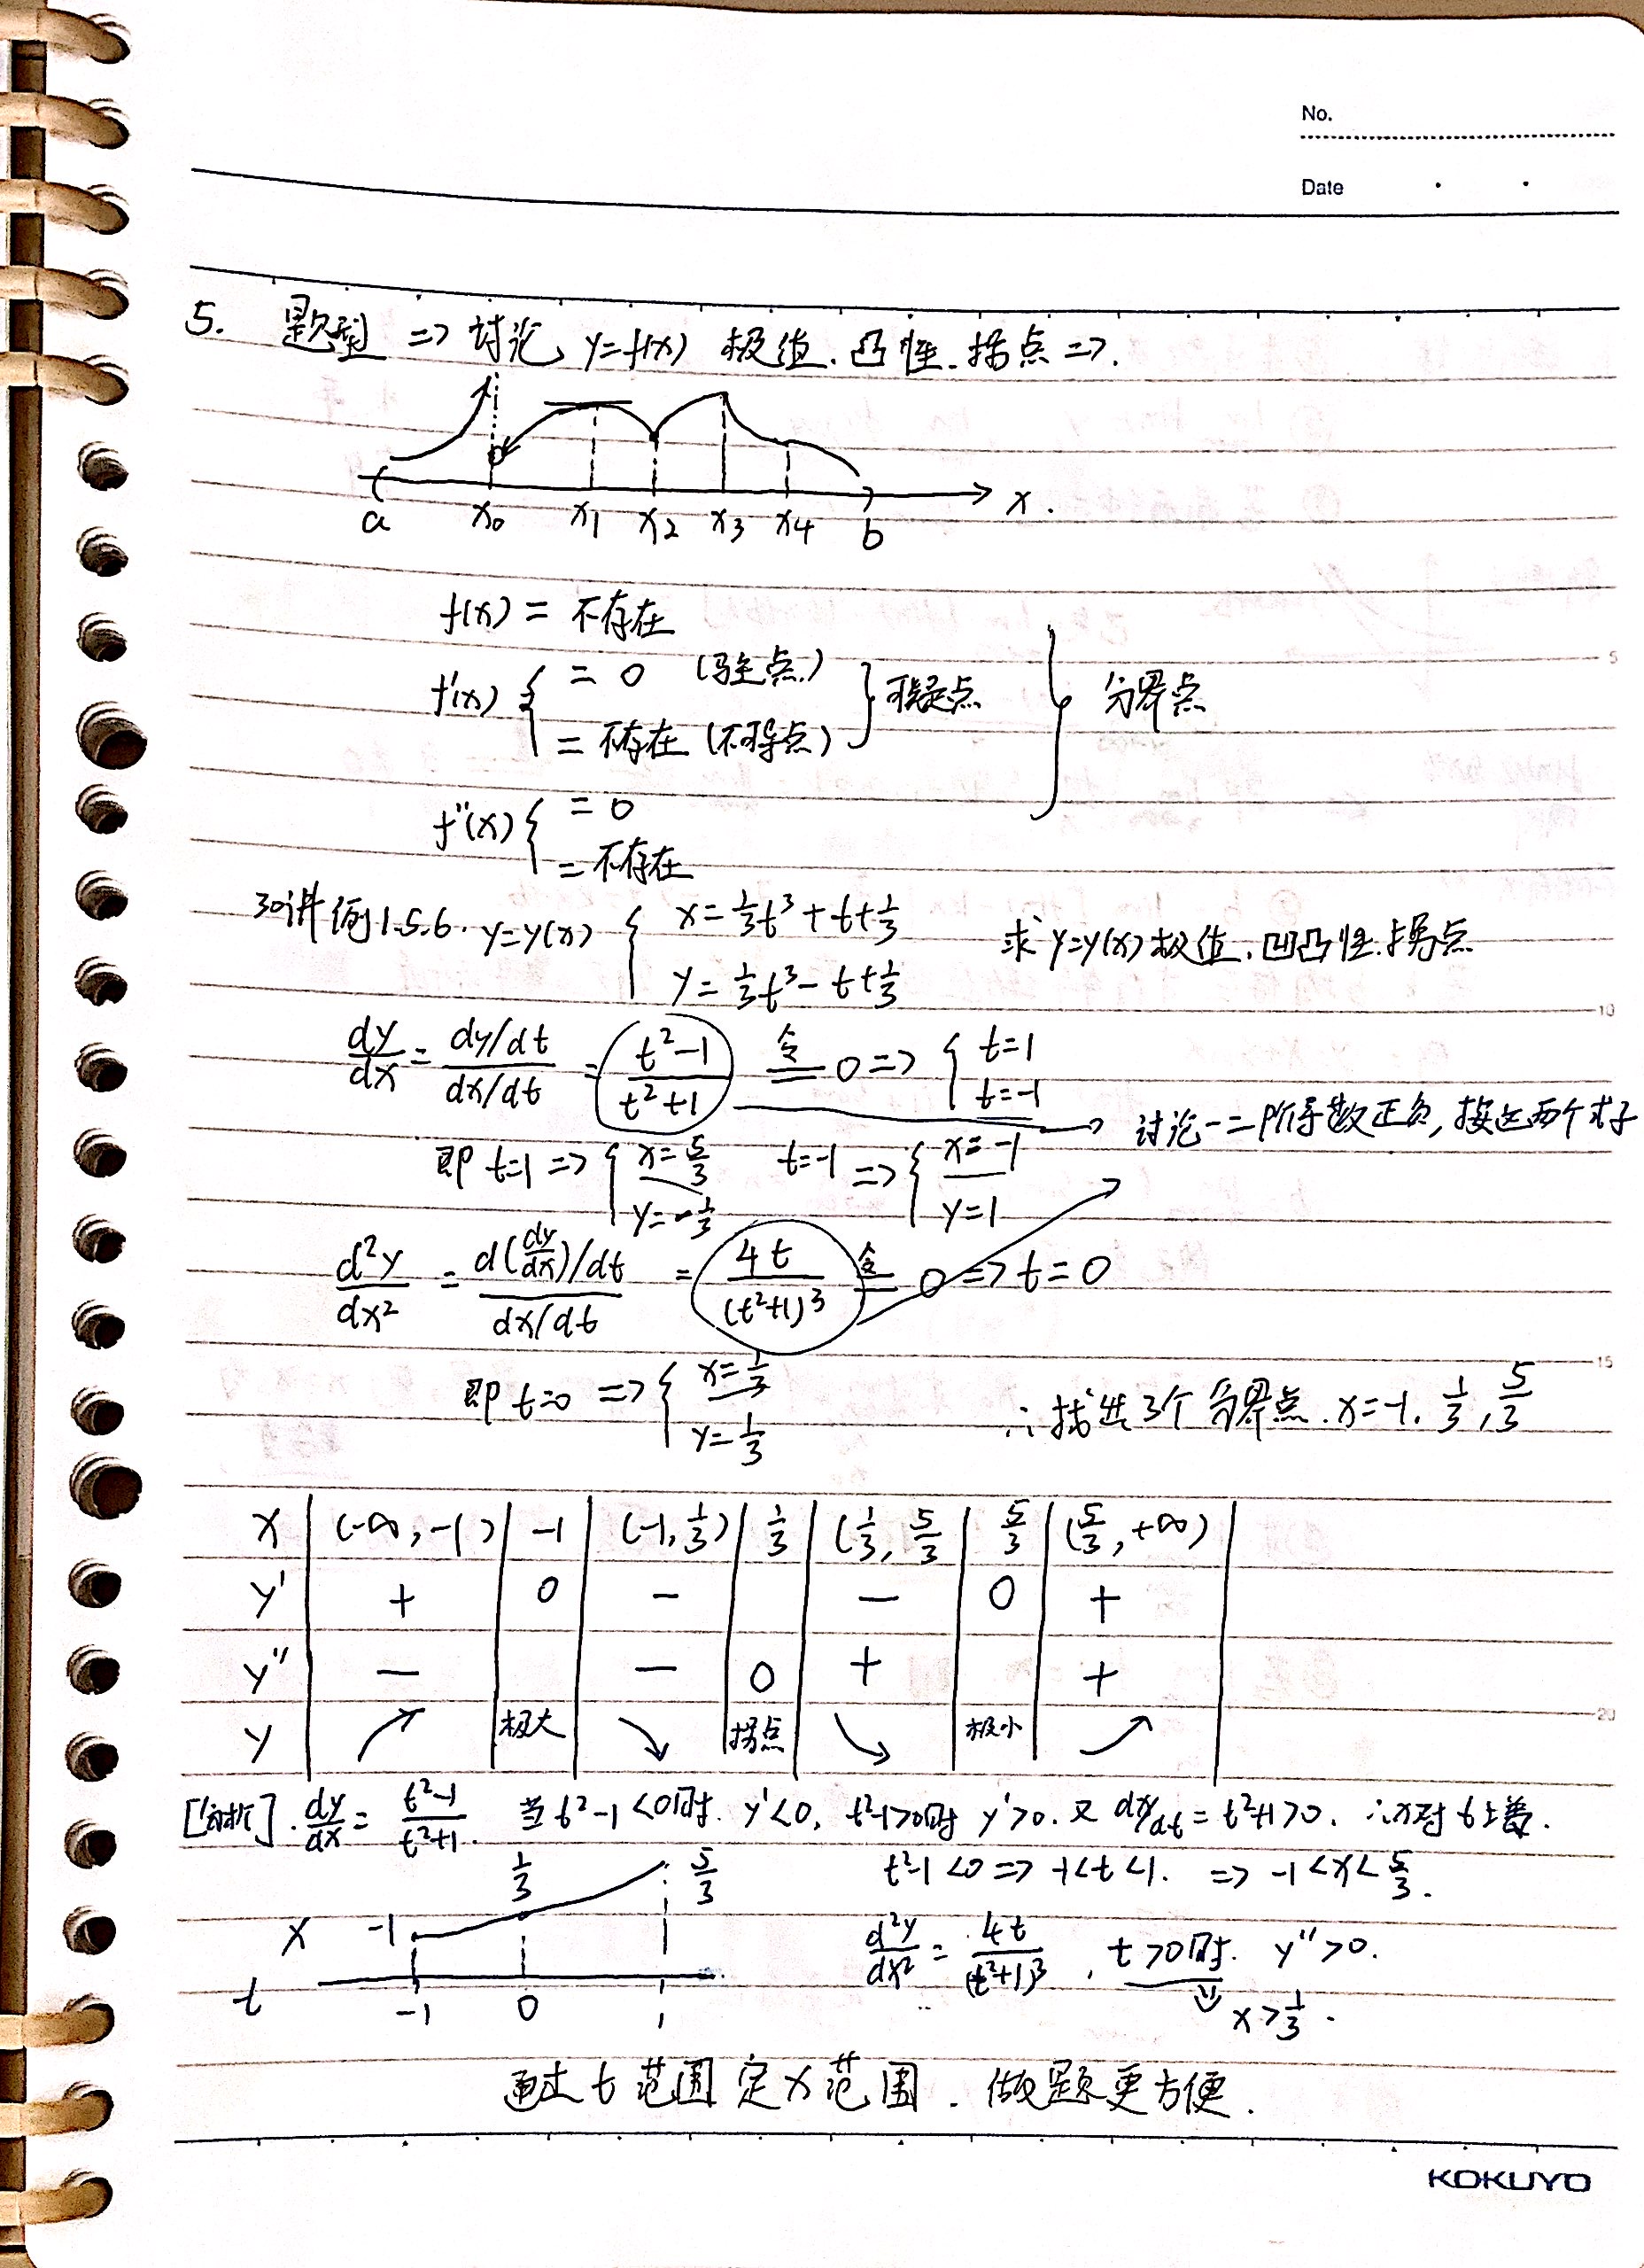 No.
Date
5. 题型 => 讨论 y=f(x) 极值. 凸性. 拐点 =>.
a x₀ x₁ x₂ x₃ x₄ b x.
f(x) = 不存在
f'(x) { = 0 (驻点) } 可疑点 } 分界点
= 不存在 (不可导点)
f''(x) { = 0
= 不存在
30讲 例1.5.6. y=y(x) { x=⅓t³+t+⅓ 求 y=y(x) 极值. 凹凸性. 拐点
y=⅓t³-t+⅓
dy/dx = (dy/dt)/(dx/dt) = (t²-1)/(t²+1) 令= 0 => { t=1
t=-1
讨论一二阶导数正负, 接这两个式子
即 t=1 => { x=5/3 t=-1 => { x=-1
y=-⅓ y=1
d²y/dx² = (d(dy/dx)/dt)/(dx/dt) = 4t/(t²+1)³ 令= 0 => t=0
即 t=0 => { x=⅓ ∴ 找出3个分界点. x=-1. ⅓, 5/3
y=⅓
x | (-∞, -1) | -1 | (-1, ⅓) | ⅓ | (⅓, 5/3 | 5/3 | (5/3, +∞) |
y' | + | 0 | - | | - | 0 | + |
y'' | - | | - | 0 | + | | + |
y | ↗ | 极大 | ↘ | 拐点 | ↘ | 极小 | ↗ |
[分析]. dy/dx = (t²-1)/(t²+1). 当 t²-1<0时. y'<0, t²-1>0时 y'>0. 又 dx/dt = t²+1>0. ∴x对t上着.
t²-1<0 => -1<t<1. => -1<x<5/3.
x -1 ⅓ 5/3
t -1 0 1
d²y/dx² = 4t/(t²+1)³, t>0时. y''>0.
⇓ x>⅓.
通过 t 范围 定 x 范围. 做题更方便.
KOKUYO